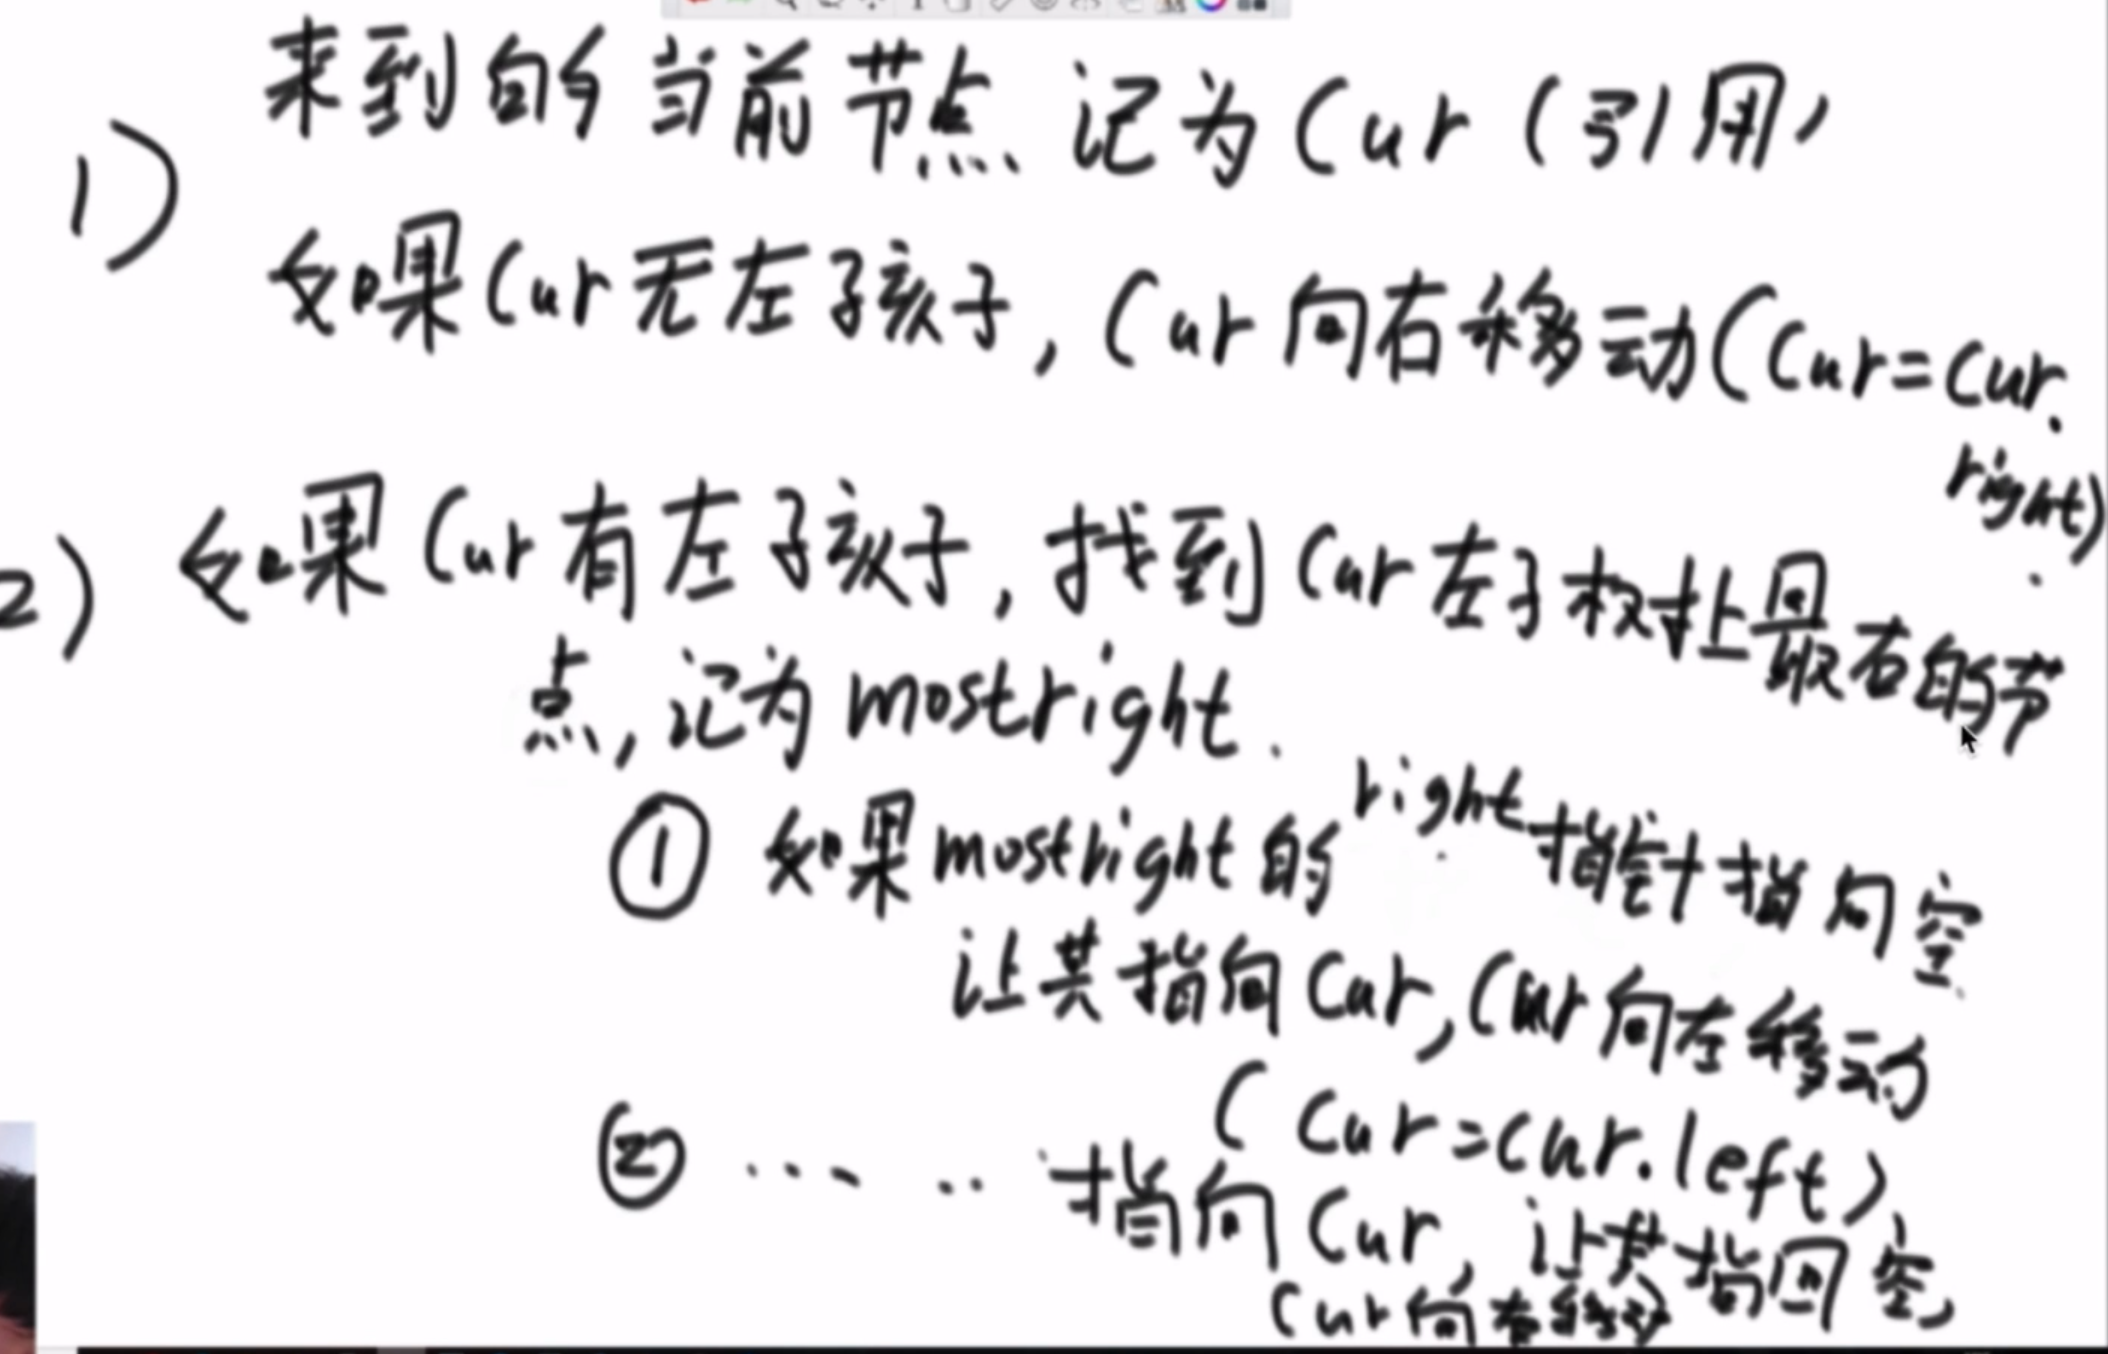 来到的当前节点、记为Cur（引用）
1)
如果Cur无左子孩子，Cur向右移动(Cur=Cur.
right)
2) 如果Cur有左子孩子，找到Cur左子树上最右的节
点，记为mostright.
① 如果mostright的right指针指向空
让其指向Cur，Cur向左移动
(Cur=cur.left)
② ..... 指向Cur，让其指回空，
Cur向右移动